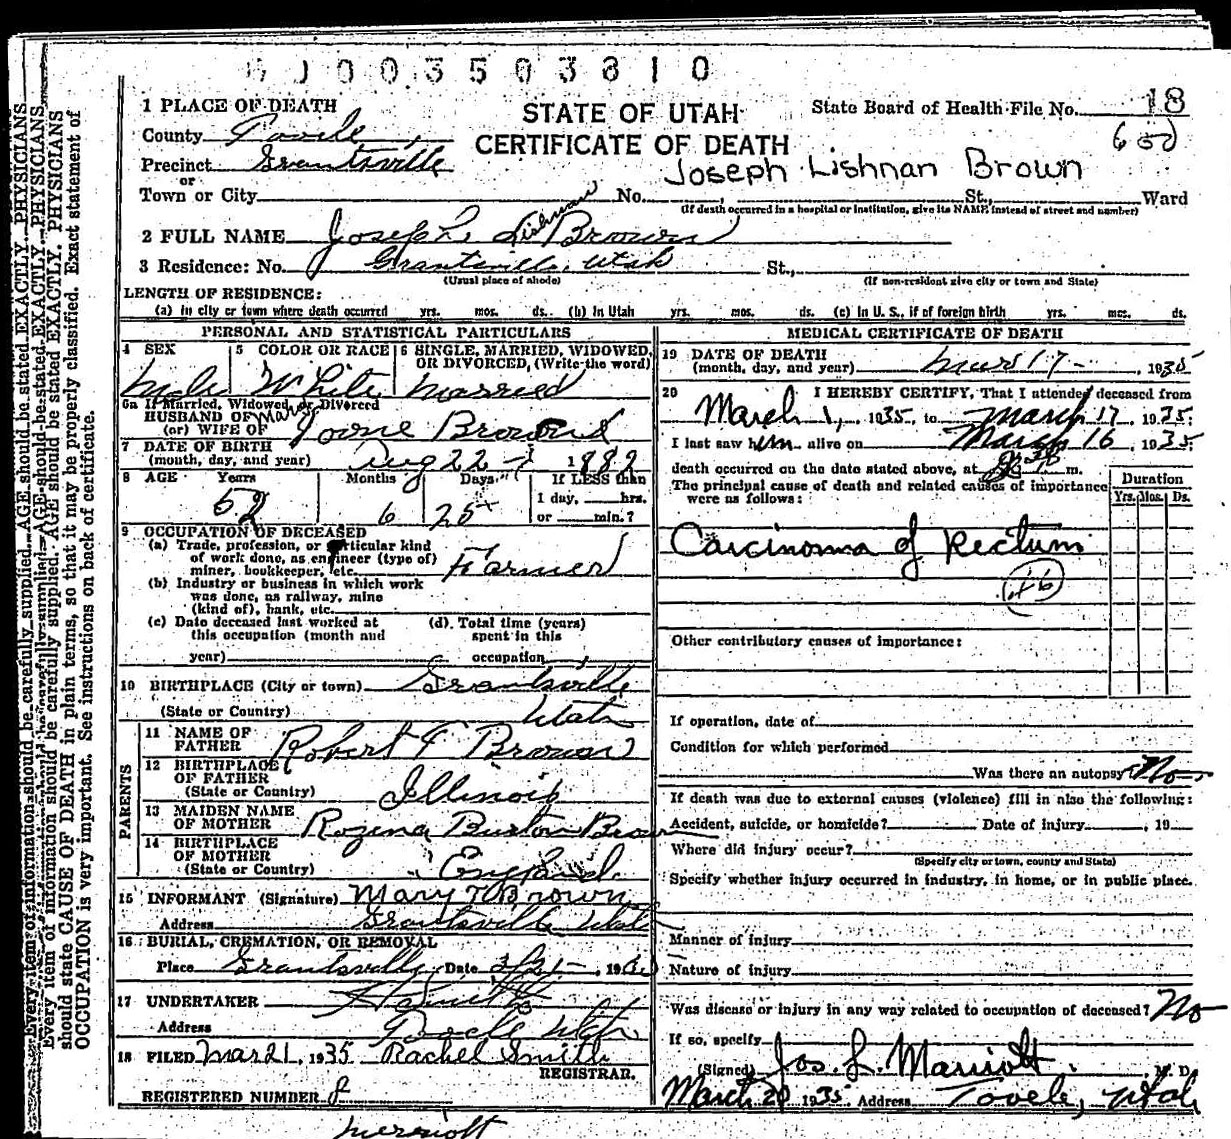 0 0 3 5 0 3 8 1 0
1 PLACE OF DEATH
STATE OF UTAH
State Board of Health File No. 18
County Tooele
CERTIFICATE OF DEATH
600
Precinct Grantsville
Joseph Lishnan Brown
or
Town or City No. St., Ward
(If death occurred in a hospital or institution, give its NAME instead of street and number)
2 FULL NAME Joseph L. Lishman Brown
3 Residence: No. Grantsville, Utah St.,
(Usual place of abode) (If non-resident give city or town and State)
LENGTH OF RESIDENCE:
(a) in city or town where death occurred yrs. mos. ds. (b) In Utah yrs. mos. ds. (c) In U. S., if of foreign birth yrs. mos. ds.
PERSONAL AND STATISTICAL PARTICULARS
4 SEX Male
5 COLOR OR RACE White
6 SINGLE, MARRIED, WIDOWED, OR DIVORCED, (Write the word)
Married
6a If Married, Widowed or Divorced
HUSBAND OF Mary
(or) WIFE OF Brown
7 DATE OF BIRTH
(month, day, and year) Aug 22 - 1882
8 AGE Years Months Days If LESS than
1 day, hrs.
52 6 25 or min.?
9 OCCUPATION OF DECEASED
(a) Trade, profession, or particular kind
of work done, as engineer (type of)
miner, bookkeeper, etc. Farmer
(b) Industry or business in which work
was done, as railway, mine
(kind of), bank, etc.
(c) Date deceased last worked at
this occupation (month and
year)
(d). Total time (years)
spent in this
occupation
10 BIRTHPLACE (City or town) Grantsville
(State or Country) Utah
PARENTS
11 NAME OF
FATHER Robert F Brown
12 BIRTHPLACE
OF FATHER
(State or Country) Illinois
13 MAIDEN NAME
OF MOTHER Rozina Burton Brown
14 BIRTHPLACE
OF MOTHER
(State or Country) England
15 INFORMANT (Signature) Mary T Brown
Address Grantsville Utah
16 BURIAL, CREMATION, OR REMOVAL
Place Grantsville Date 3/21 19
17 UNDERTAKER
Address Tooele Utah
18 FILED Mar 21, 1935 Rachel Smith
REGISTRAR.
REGISTERED NUMBER 8
MEDICAL CERTIFICATE OF DEATH
19 DATE OF DEATH
(month, day, and year) Mars 17 - , 1935
20 I HEREBY CERTIFY, That I attended deceased from
March 1, 1935, to March 17 1935.
I last saw him alive on March 16, 1935.
death occurred on the date stated above, at m.
The principal cause of death and related causes of importance
were as follows:
Duration
Yrs. Mos. Ds.
Carcinoma of Rectum
46
Other contributory causes of importance:
If operation, date of
Condition for which performed
Was there an autopsy? No
If death was due to external causes (violence) fill in also the following:
Accident, suicide, or homicide? Date of injury , 19
Where did injury occur?
(Specify city or town, county and State)
Specify whether injury occurred in industry, in home, or in public place.
Manner of injury
Nature of injury
Was disease or injury in any way related to occupation of deceased? No
If so, specify
(Signed) Jos. L. Marriott M. D.
March 20 1935. Address Tooele, Utah
Every item of information should be carefully supplied. AGE should be stated EXACTLY. PHYSICIANS
Every item of information should be carefully supplied. AGE should be stated EXACTLY. PHYSICIANS
should state CAUSE OF DEATH in plain terms, so that it may be properly classified. Exact statement of
OCCUPATION is very important. See instructions on back of certificate.